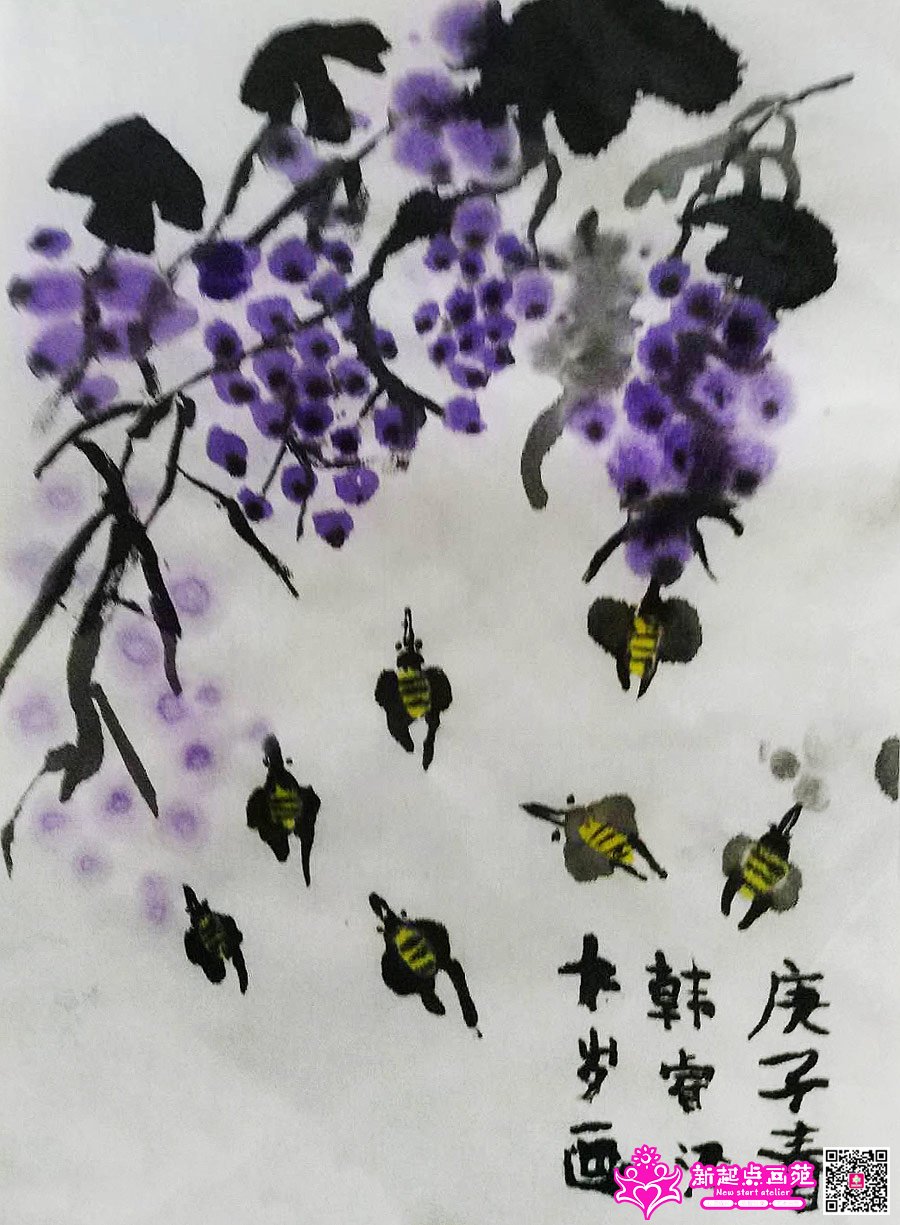 庚子春
韩睿
岁画
新起点画苑
New start atelier